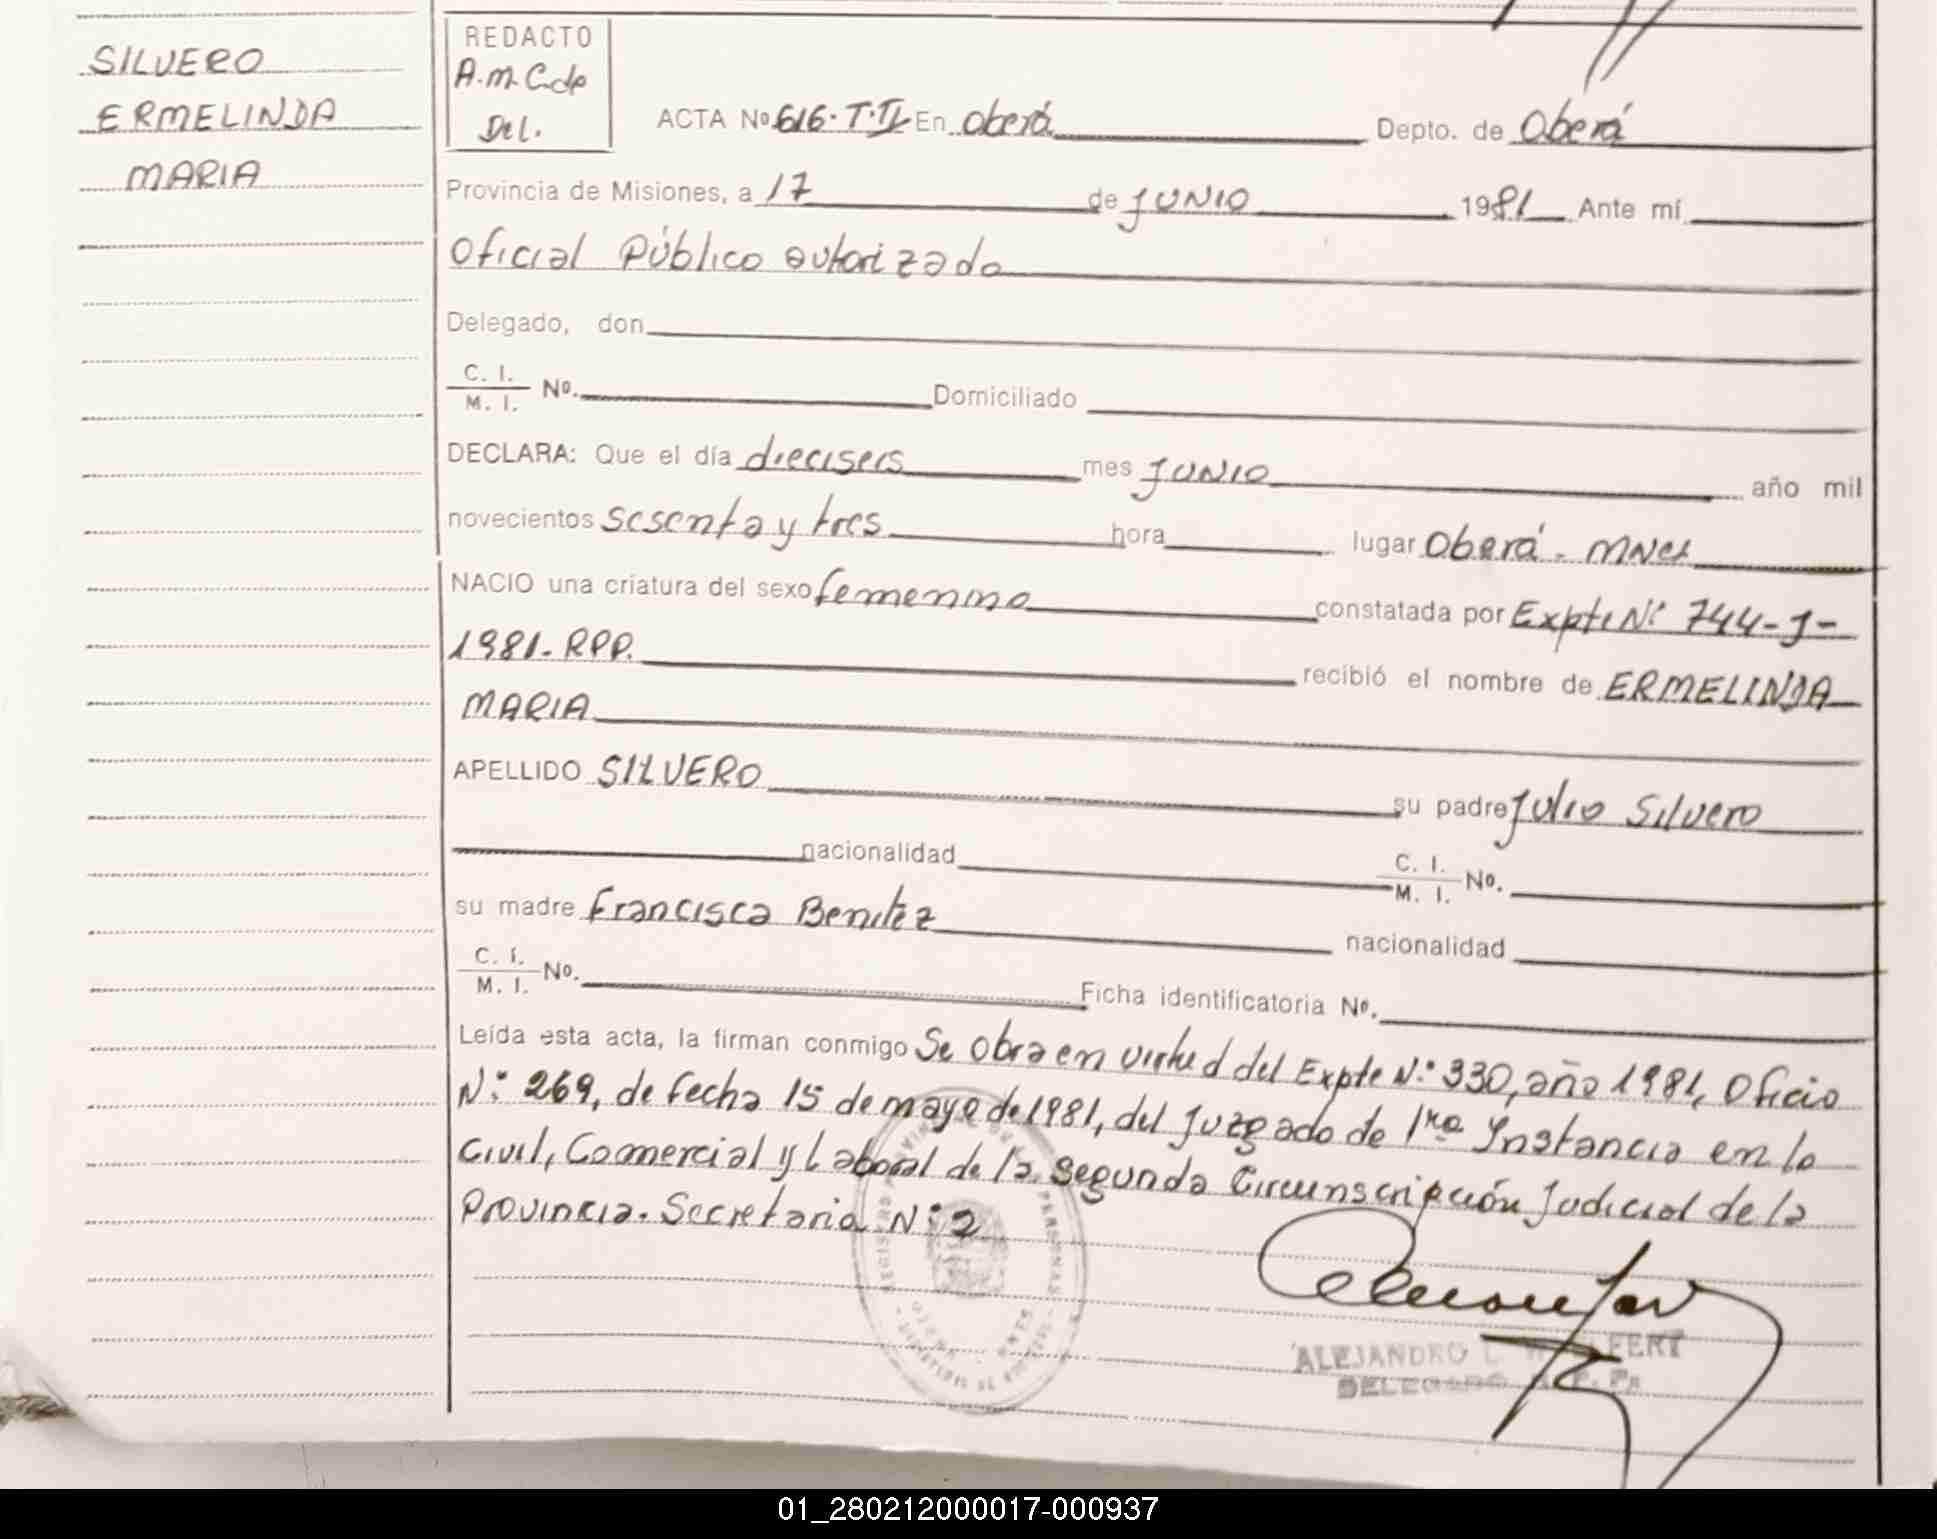 SILVERO
ERMELINDA
MARIA
REDACTO
A.M.C.de
Del.
ACTA Nº 616. T.II En Oberá Depto. de Oberá
Provincia de Misiones, a 17 de JUNIO 1981 Ante mí
Oficial Público autorizado
Delegado, don
C. I. / M. I. Nº. Domiciliado
DECLARA: Que el día dieciseis mes JUNIO año mil
novecientos sesenta y tres hora lugar Oberá - Mnes
NACIO una criatura del sexo femenino constatada por Expte Nº 744-J-
1981-RPP. recibió el nombre de ERMELINDA
MARIA
APELLIDO SILVERO su padre Julio Silvero
nacionalidad C. I. / M. I. Nº.
su madre Francisca Benitez nacionalidad
C. I. / M. I. Nº. Ficha identificatoria Nº.
Leída esta acta, la firman conmigo Se obra en virtud del Expte Nº 330, año 1981, Oficio
Nº 269, de fecha 15 de mayo de 1981, del Juzgado de 1ra Instancia en lo
Civil, Comercial y Laboral de la Segunda Circunscripción Judicial de la
Provincia. Secretaria Nº 2
ALEJANDRO L.
DELEGADO
01_280212000017-000937